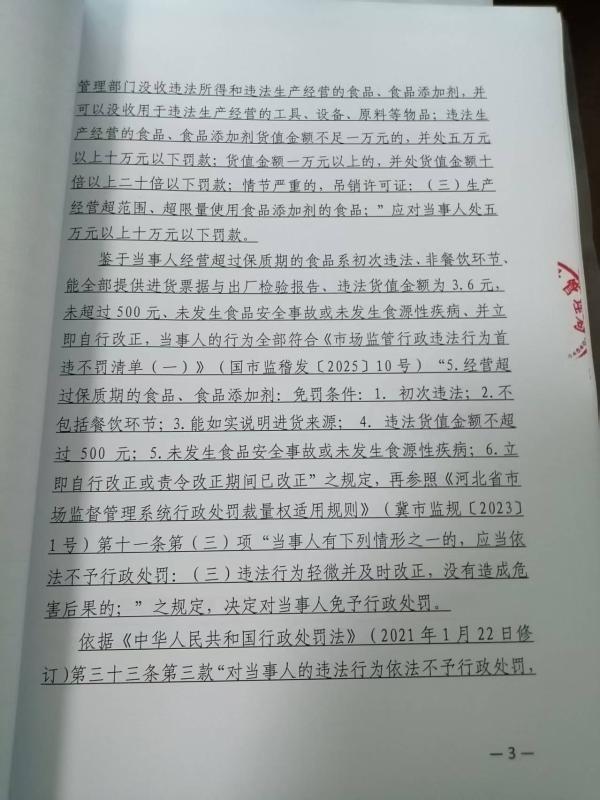 管理部门没收违法所得和违法生产经营的食品、食品添加剂，并
可以没收用于违法生产经营的工具、设备、原料等物品；违法生
产经营的食品、食品添加剂货值金额不足一万元的，并处五万元
以上十万元以下罚款；货值金额一万元以上的，并处货值金额十
倍以上二十倍以下罚款；情节严重的，吊销许可证：（三）生产
经营超范围、超限量使用食品添加剂的食品；”应对当事人处五
万元以上十万元以下罚款。
鉴于当事人经营超过保质期的食品系初次违法、非餐饮环节、
能全部提供进货票据与出厂检验报告、违法货值金额为3.6元，
未超过500元、未发生食品安全事故或未发生食源性疾病、并立
即自行改正，当事人的行为全部符合《市场监管行政违法行为首
违不罚清单（一）》（国市监稽发〔2025〕10号）“5.经营超
过保质期的食品、食品添加剂：免罚条件：1. 初次违法；2.不
包括餐饮环节；3.能如实说明进货来源； 4. 违法货值金额不超
过 500 元；5.未发生食品安全事故或未发生食源性疾病；6.立
即自行改正或责令改正期间已改正”之规定，再参照《河北省市
场监督管理系统行政处罚裁量权适用规则》（冀市监规〔2023〕
1号）第十一条第（三）项“当事人有下列情形之一的，应当依
法不予行政处罚：（三）违法行为轻微并及时改正，没有造成危
害后果的；”之规定，决定对当事人免予行政处罚。
依据《中华人民共和国行政处罚法》（2021年1月22日修
订)第三十三条第三款“对当事人的违法行为依法不予行政处罚，
— 3 —